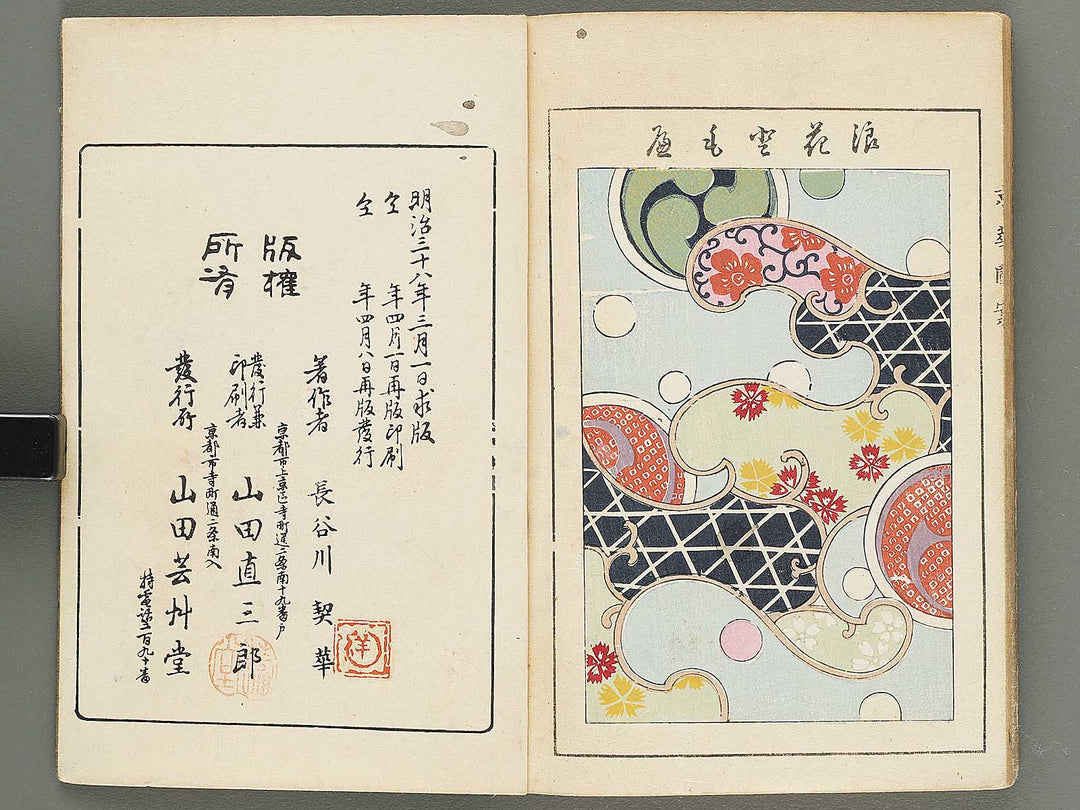 浪花
京華圖案
明治三十八年三月一日求版
仝 年四月一日再版印刷
仝 年四月八日再版發行
版權
所有
著作者 長谷川契華
京都市上京區寺町通二条南十九番戸
發行兼
印刷者 山田直三郎
京都市寺町通二条南入
發行所 山田芸艸堂
特電話二百九十番